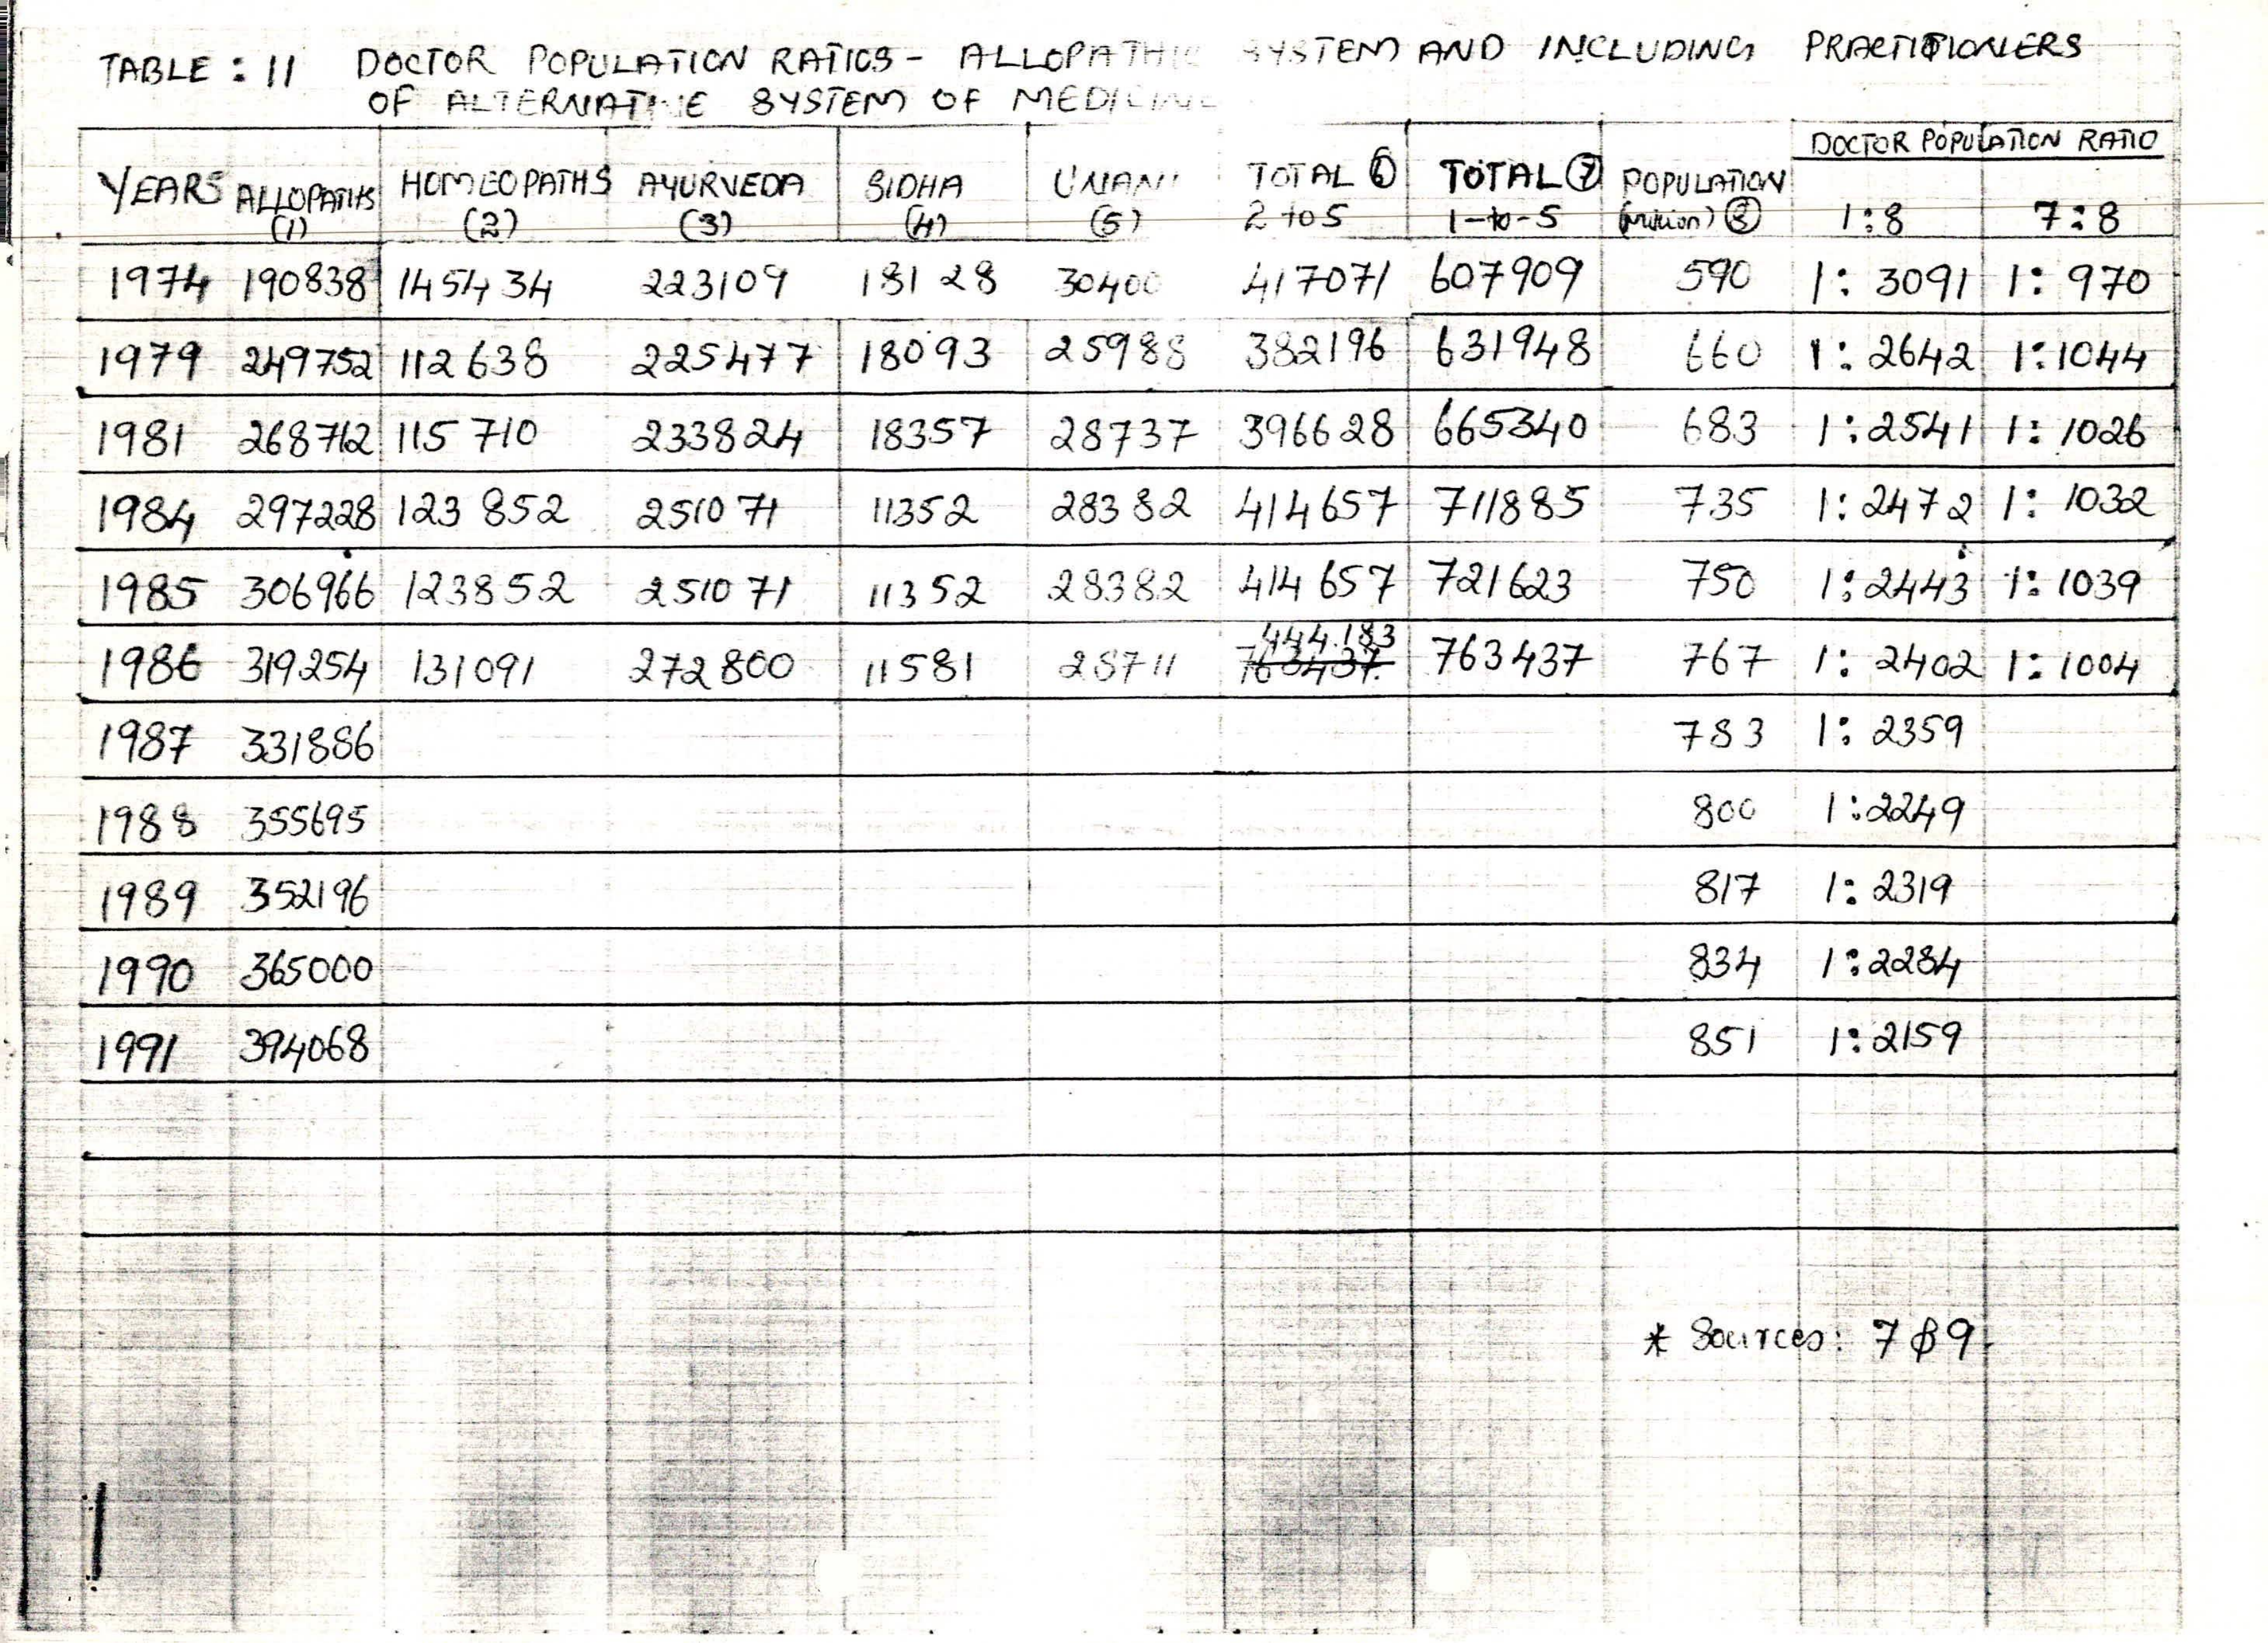 TABLE : 11 DOCTOR POPULATION RATIOS - ALLOPATHIC SYSTEM AND INCLUDING PRACTITIONERS
OF ALTERNATIVE SYSTEM OF MEDICINE
DOCTOR POPULATION RATIO
YEARS ALLOPATHS HOMEOPATHS AYURVEDA SIDHA UNANI TOTAL ⑥ TOTAL ⑦ POPULATION
(1) (2) (3) (4) (5) 2 to 5 1-to-5 (million) ⑧ 1:8 7:8
1974 190838 145434 223109 18128 30400 417071 607909 590 1: 3091 1: 970
1979 249752 112638 225477 18093 25988 382196 631948 660 1: 2642 1:1044
1981 268712 115710 233824 18357 28737 396628 665340 683 1:2541 1: 1026
1984 297228 123852 251071 11352 28382 414657 711885 735 1:2472 1: 1032
1985 306966 123852 251071 11352 28382 414657 721623 750 1:2443 1: 1039
444.183
1986 319254 131091 272800 11581 28711 763437. 763437 767 1: 2402 1: 1004
1987 331886 783 1: 2359
1988 355695 800 1:2249
1989 352196 817 1: 2319
1990 365000 834 1:2284
1991 394068 851 1:2159
* Sources: 7 & 9